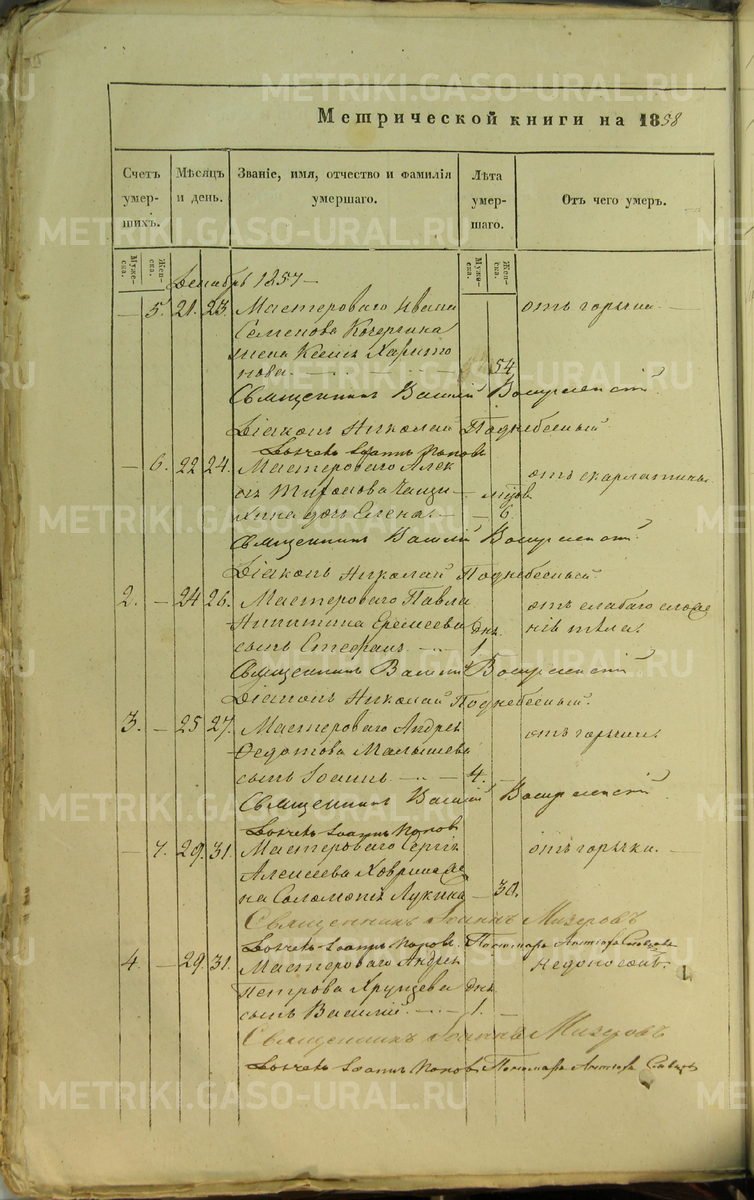 Метрической книги на 1858
Счетъ умершихъ.
Мѣсяцъ и день.
Званіе, имя, отчество и фамилія умершаго.
Лѣта умершаго.
Отъ чего умеръ.
Мужеска. Женска.
Мужеска. Женска.
Декабрь 1857
— 5. 21. 23. Мастероваго Ивана отъ горячки. —
Семенова Кочергина
жена Харито
нова. 54
Священникъ Василій Воскресенскій
Діаконъ Николай Поднебесный
Іоаннъ Поповъ
— 6. 22 24. Мастероваго Алек отъ скарлатины.
дочь Елена. — — 6.
Священникъ Василій Воскресенскій
Діаконъ Николай Поднебесный.
2. — 24 26. Мастероваго Павла отъ слабаго сложе
Еремеева дня нія тѣла.
сынъ Стефанъ. 1.
Священникъ Василій Воскресенскій
Діаконъ Николай Поднебесный.
3. — 25 27. Мастероваго Андрея отъ горячки.
Федотова Малышева
сынъ Іоаннъ — — 4. —
Священникъ Василій Воскресенскій
Іоаннъ Поповъ
— 7. 29. 31. Мастероваго Сергія отъ горячки. —
Алексеева Ховрина же
на Соломонія Лукина — 30.
Священникъ Іоаннъ Мизеровъ
Іоаннъ Поповъ. Пономарь
4. — 29. 31. Мастероваго Андрея недоносокъ.
Петрова Хрущева дня
сынъ Василій. — 1. —
Священникъ Іоаннъ Мизеровъ
Іоаннъ Поповъ Пономарь
METRIKI.GASO-URAL.RU